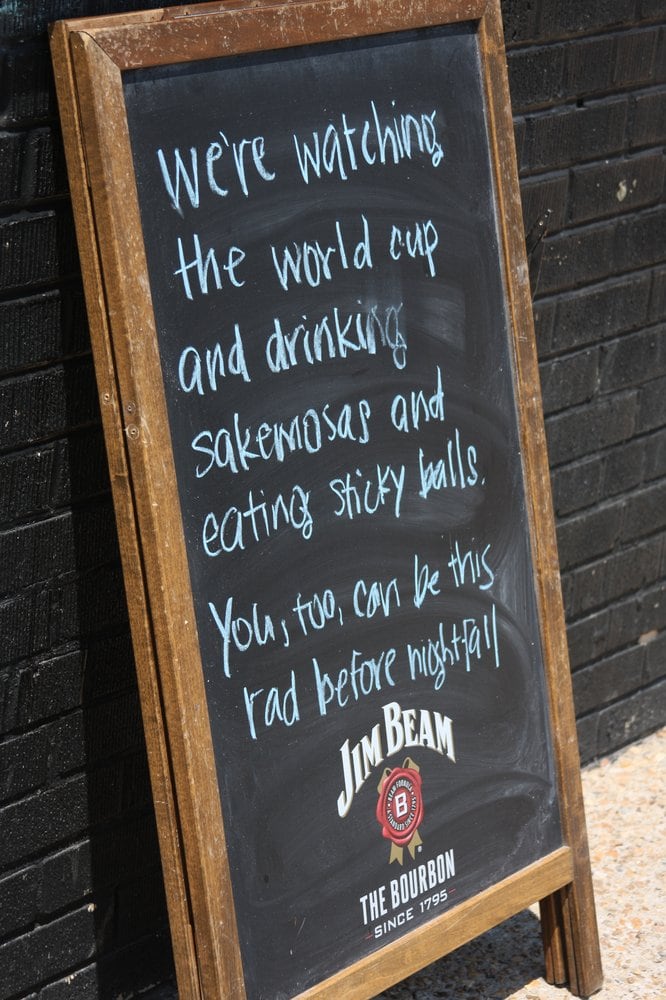 We're watching
the world cup
and drinking
sakemosas and
eating sticky balls.
You, too, can be this
rad before nightfall
JIM BEAM
BEAM FORMULA
A STANDARD SINCE 1795
B
THE BOURBON
SINCE 1795